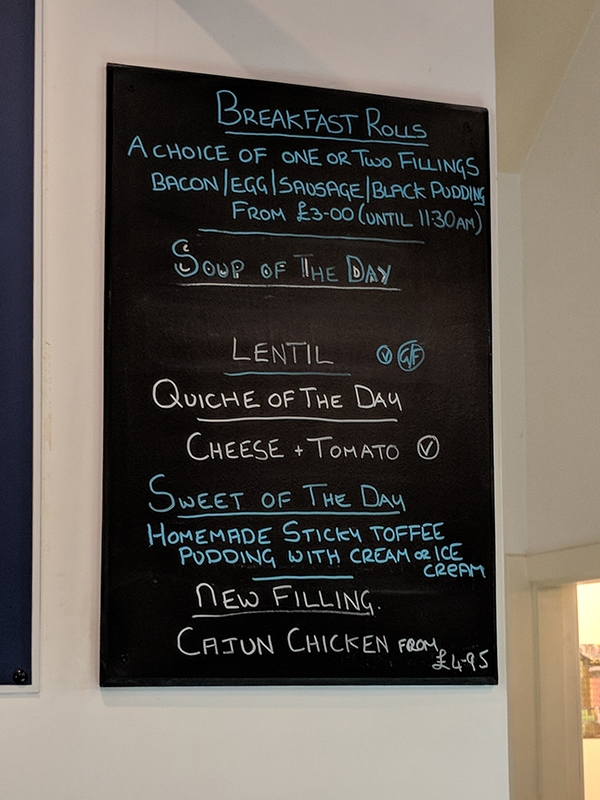 BREAKFAST ROLLS
A CHOICE OF ONE OR TWO FILLINGS
BACON/EGG/SAUSAGE/BLACK PUDDING
FROM £3-00 (UNTIL 11:30AM)
SOUP OF THE DAY
LENTIL V GF
QUICHE OF THE DAY
CHEESE + TOMATO V
SWEET OF THE DAY
HOMEMADE STICKY TOFFEE
PUDDING WITH CREAM OR ICE
CREAM
NEW FILLING.
CAJUN CHICKEN FROM
£4-95